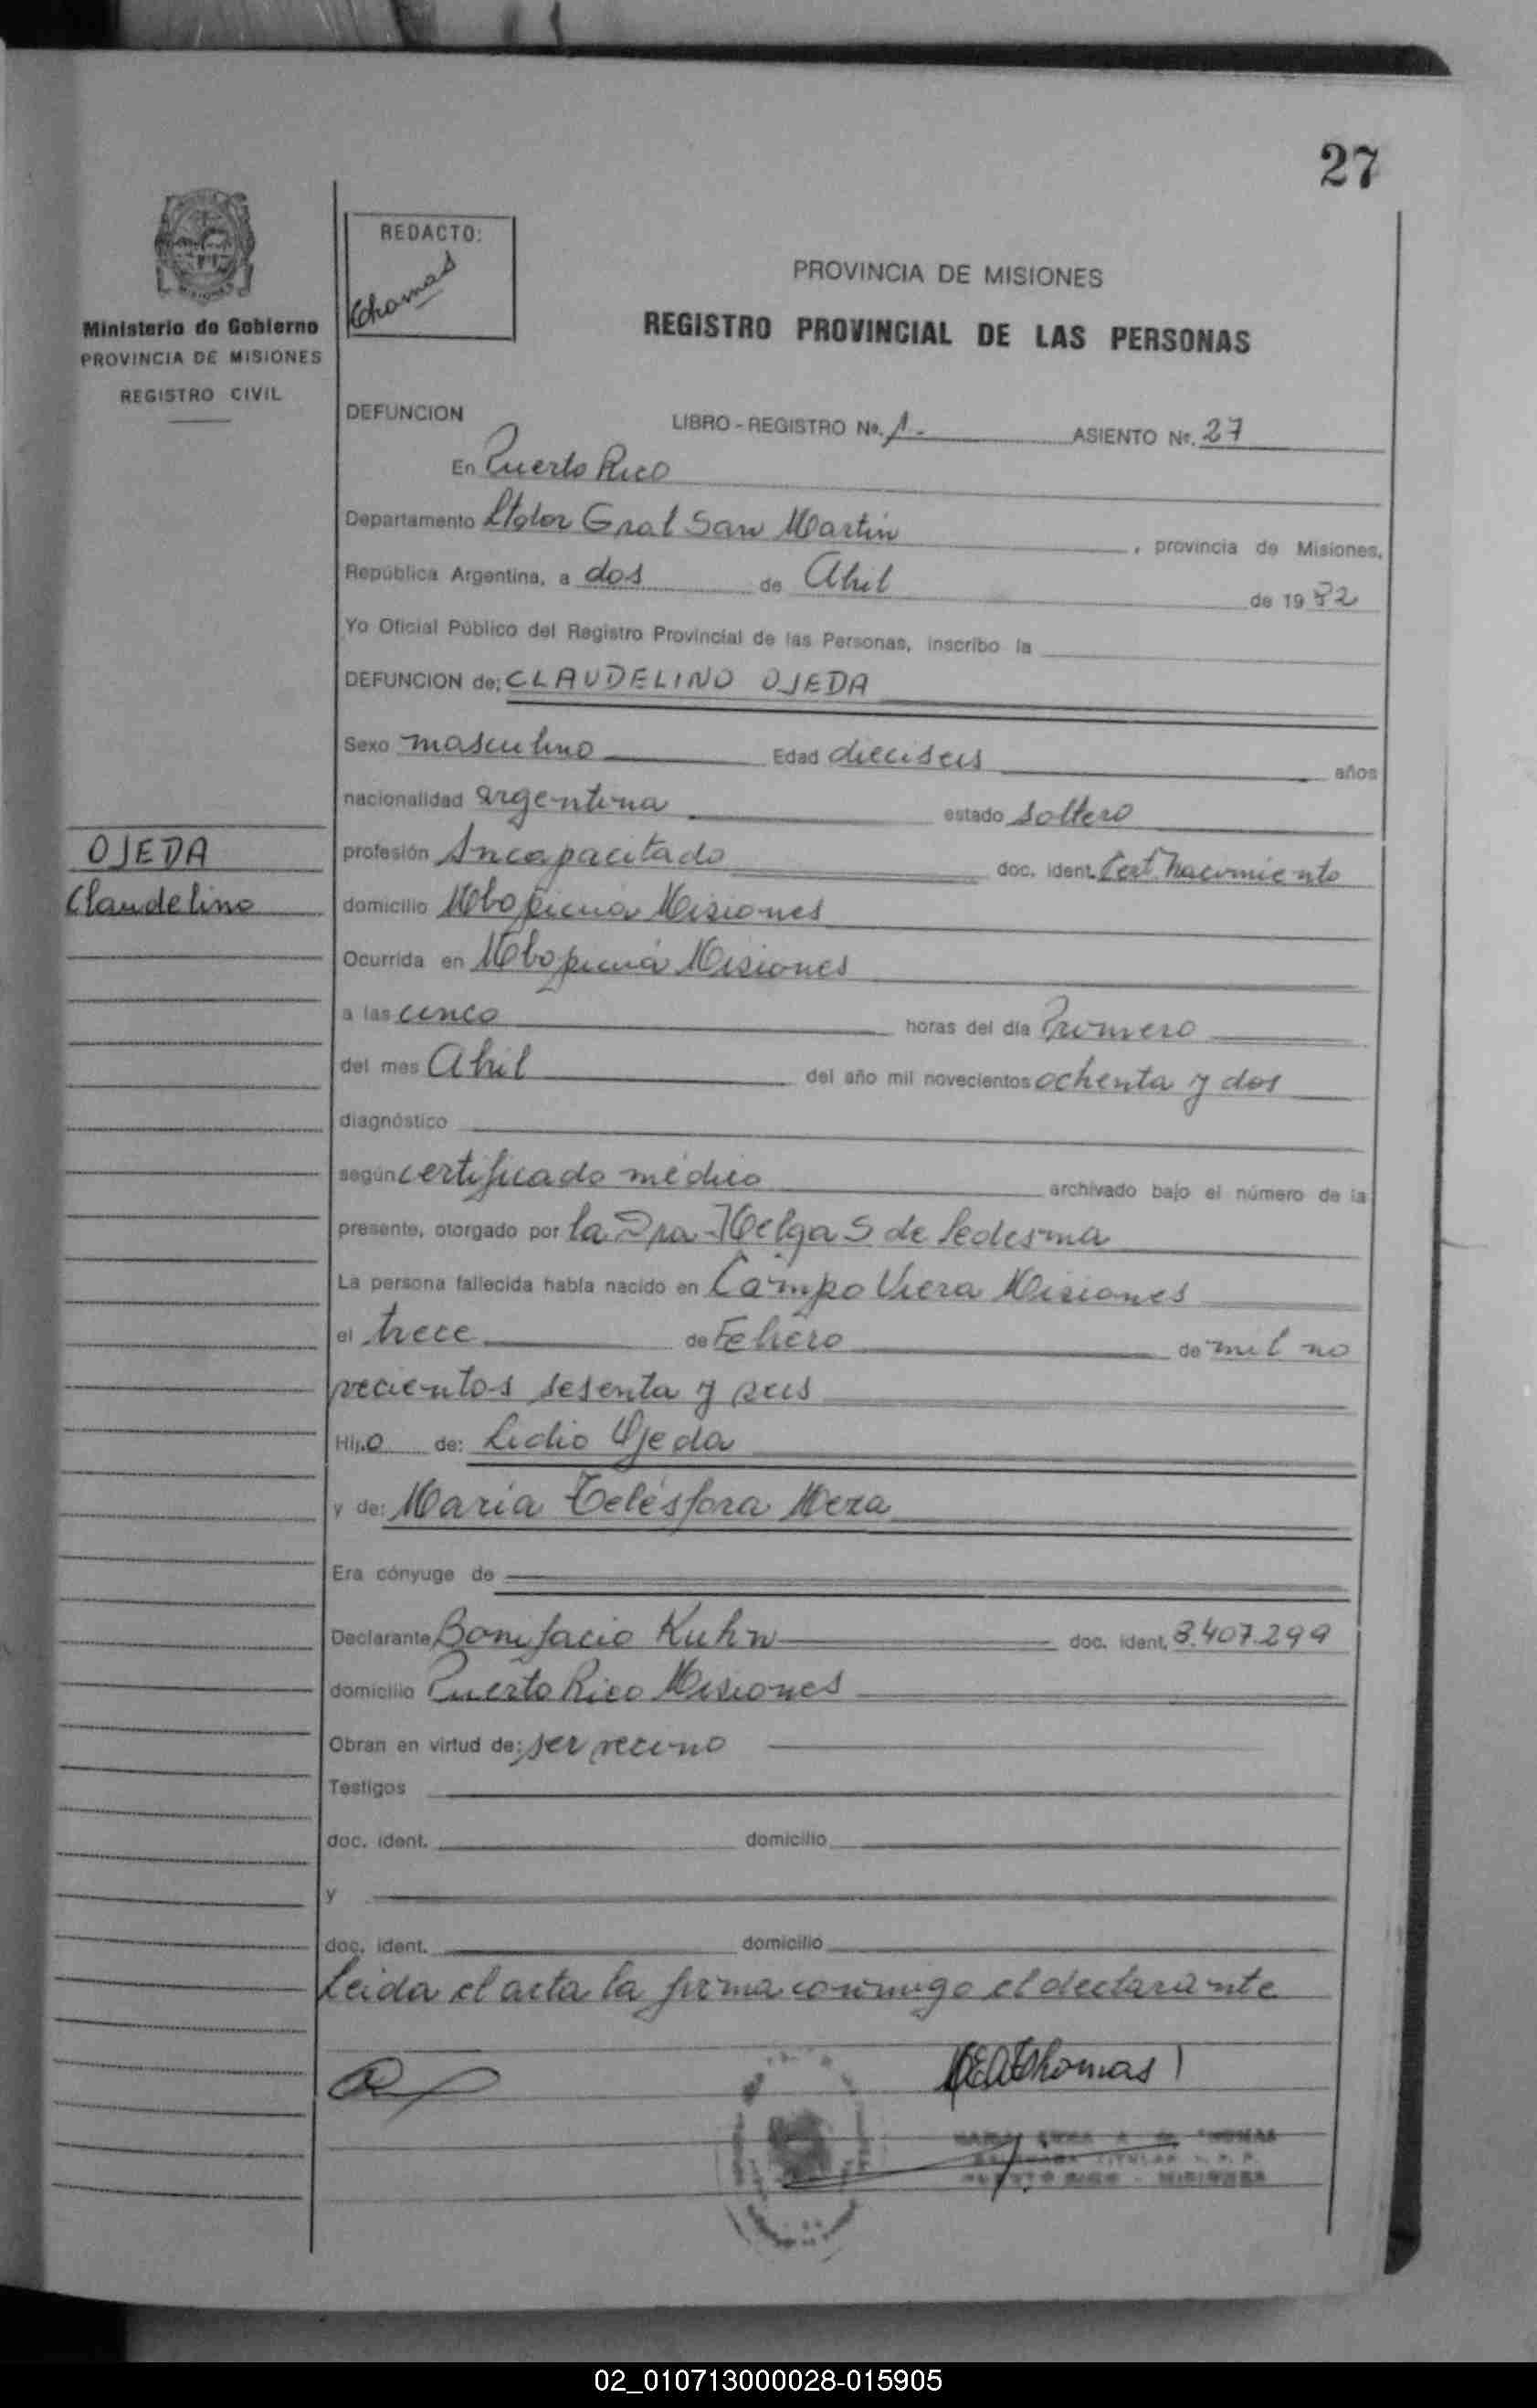 27
REDACTO:
Thomas
Ministerio de Gobierno
PROVINCIA DE MISIONES
REGISTRO CIVIL
PROVINCIA DE MISIONES
REGISTRO PROVINCIAL DE LAS PERSONAS
DEFUNCION LIBRO - REGISTRO No. 1.- ASIENTO No. 27
En Puerto Rico
Departamento Ltdor Gral San Martin , provincia de Misiones,
República Argentina, a dos de Abril de 1982
Yo Oficial Público del Registro Provincial de las Personas, inscribo la
DEFUNCION de; CLAUDELINO OJEDA
Sexo masculino Edad dieciseis años
nacionalidad argentina estado soltero
OJEDA
Claudelino
profesión Incapacitado doc. ident. Cert Nacimiento
domicilio Mbopicuá Misiones
Ocurrida en Mbopicuá Misiones
a las cinco horas del día Primero
del mes Abril del año mil novecientos ochenta y dos
diagnóstico
según certificado médico archivado bajo el número de la
presente, otorgado por la Dra Helga S de Ledesma
La persona fallecida había nacido en Campo Viera Misiones
el trece de Febrero de mil no
vecientos sesenta y seis
Hijo de: Lidio Ojeda
y de: Maria Telésfora Meza
Era cónyuge de
Declarante Bonifacio Kuhn doc. ident. 8.407.299
domicilio Puerto Rico Misiones
Obran en virtud de: ser vecino
Testigos
doc. ident. domicilio
y
doc. ident. domicilio
Leida el acta la firma conmigo el declarante
PUERTO RICO - MISIONES
02_010713000028-015905